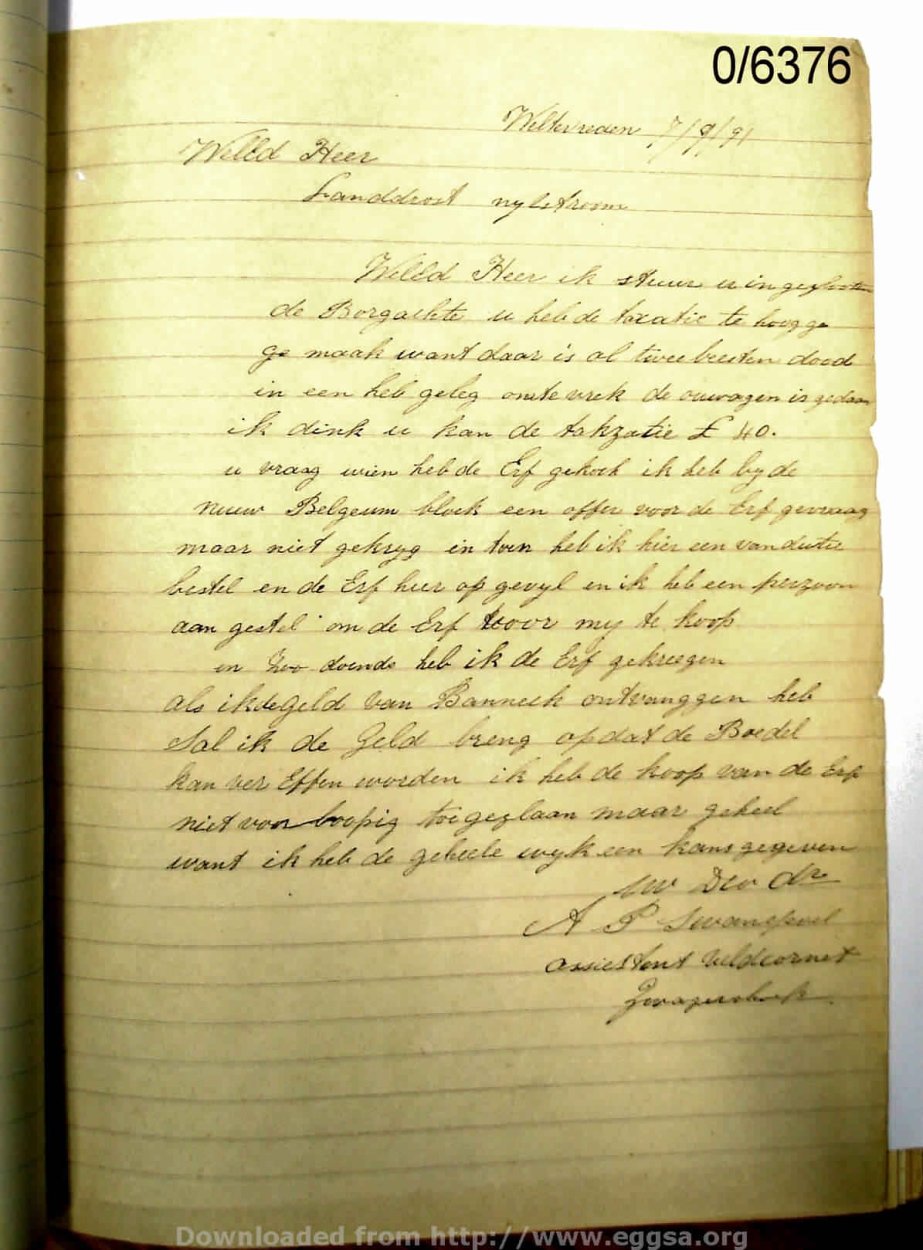 0/6376
Weltevreden 7/9/91
WelEd Heer
Landdrost nylstroom
WelEd Heer ik stuur u ingesloten
de Borgackte u heb de taxatie te hoog ge
ge maak want daar is al twee beesten dood
in een heb geleg de ouwagen is gedaan
ik dink u kan de takzatie £ 40.
u vraag wien heb de Erf gekoch ik heb by de
nuuw Belgeum block een offer voor de Erf gevraag
maar niet gekryg en toen heb ik hier een vandutie
bestel en de Erf hier op gevyl en ik heb een perzoon
aan gestel om de Erf voor my te koop
en Zoo doende heb ik de Erf gekreegen
als ik de geld van ontvanggen heb
Sal ik de Geld breng op dat de Boedel
kan ver Effen worden ik heb de koop van de Erf
niet voor loopig toegeslaan maar geheel
want ik heb de geheele wyk een kans gegeven
UW DW dr
A P Swanepoel
assiestent Veldcornet
Zwagershoek
Downloaded from http://www.eggsa.org